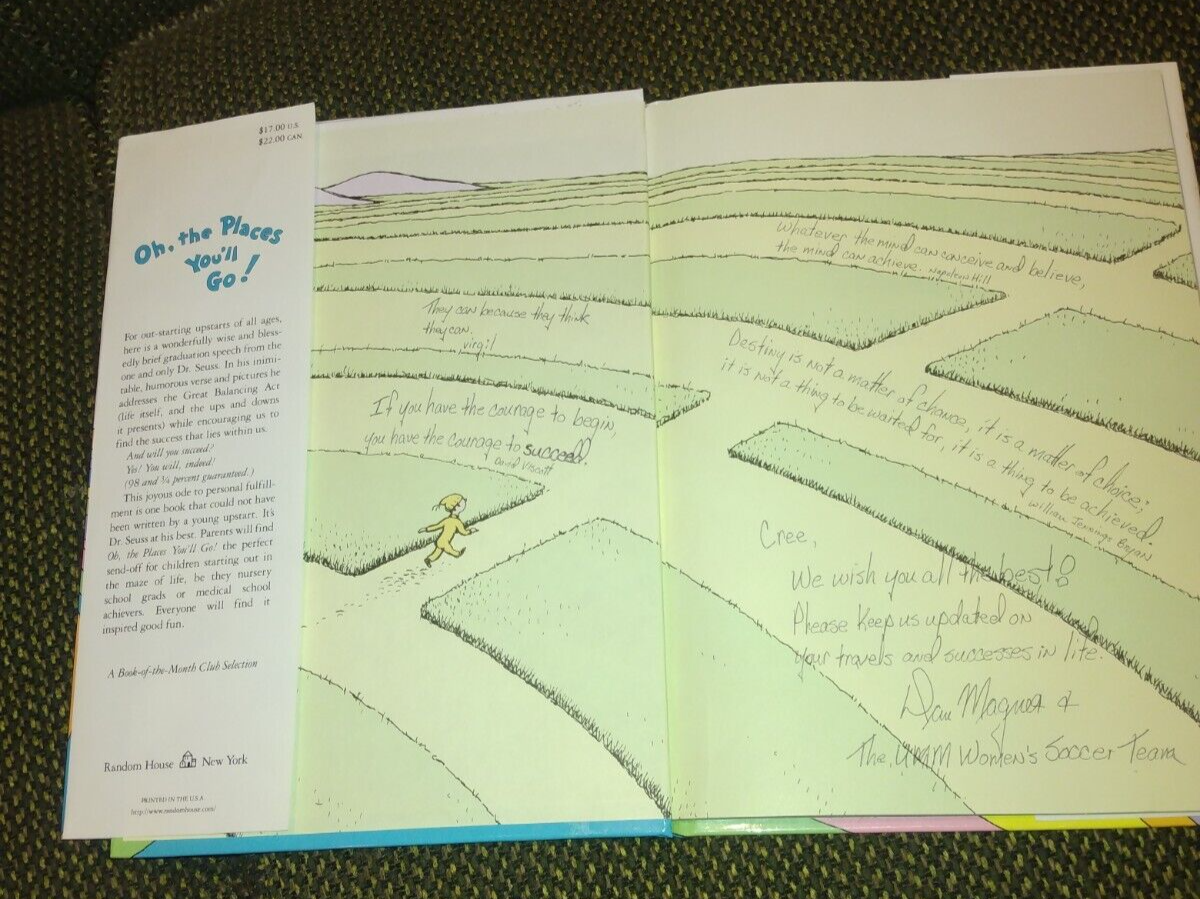 $17.00 U.S.
$22.00 CAN.
Oh, the Places
You'll
Go!
For out-starting upstarts of all ages,
here is a wonderfully wise and bless-
edly brief graduation speech from the
one and only Dr. Seuss. In his inimi-
table, humorous verse and pictures he
addresses the Great Balancing Act
(life itself, and the ups and downs
it presents) while encouraging us to
find the success that lies within us.
And will you succeed?
Yes! You will, indeed!
(98 and ¾ percent guaranteed.)
This joyous ode to personal fulfill-
ment is one book that could not have
been written by a young upstart. It's
Dr. Seuss at his best. Parents will find
Oh, the Places You'll Go! the perfect
send-off for children starting out in
the maze of life, be they nursery
school grads or medical school
achievers. Everyone will find it
inspired good fun.
A Book-of-the-Month Club Selection
Random House New York
PRINTED IN THE U.S.A.
http://www.randomhouse.com/
They can because they think
they can.
virgil
If you have the courage to begin,
you have the courage to succeed.
David Viscott
Whatever the mind can conceive and believe,
the mind can achieve. Napoleon Hill
Destiny is not a matter of chance, it is a matter of choice;
it is not a thing to be waited for, it is a thing to be achieved.
William Jennings Bryan
Cree,
We wish you all the best!
Please keep us updated on
your travels and successes in life.
Dan Magner &
The UMM Women's Soccer Team